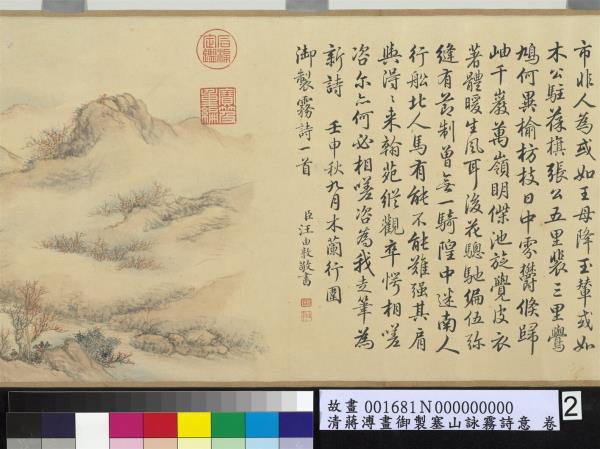 市非人為或如王母降玉輦或如
木公駐葆旗張公五里裴三里鷽
鳩何異榆枋枝日中雾鬱倐歸
岫千巖萬嶺明傑池旋覺皮衣
著體暖生風耳後花驄馳偏伍弥
縫有節制曽無一騎隍中迷南人
行船北人馬有能不能難強其肩
輿得得来翰苑縱觀卒愕相嗟
咨尔亦何必相嗟咨為我走筆為
新詩 壬申秋九月木蘭行圍
御製霧詩一首
臣汪由敦敬書
石渠定鑑
寶笈重編
故畫 001681N000000000
清蔣溥畫御製塞山詠霧詩意 卷
2